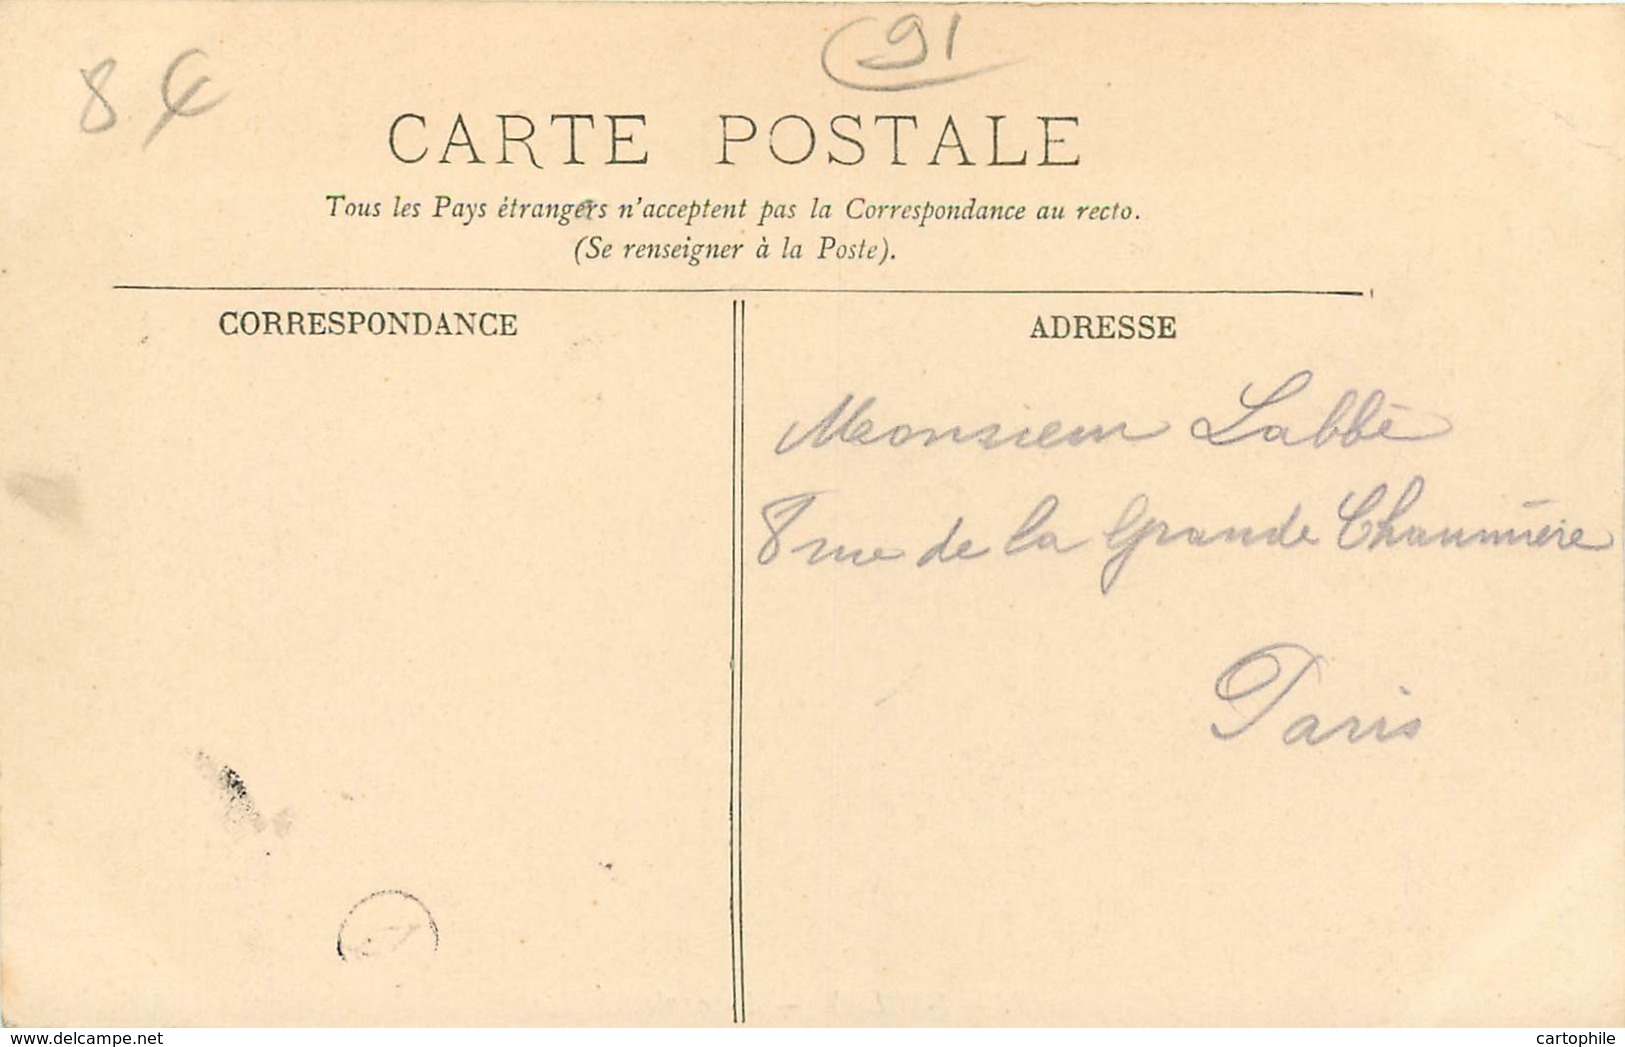 91
8 €
CARTE POSTALE
Tous les Pays étrangers n'acceptent pas la Correspondance au recto.
(Se renseigner à la Poste).
CORRESPONDANCE
ADRESSE
Monsieur Labbé
8 rue de la Grande Chaumière
Paris
www.delcampe.net
cartophile